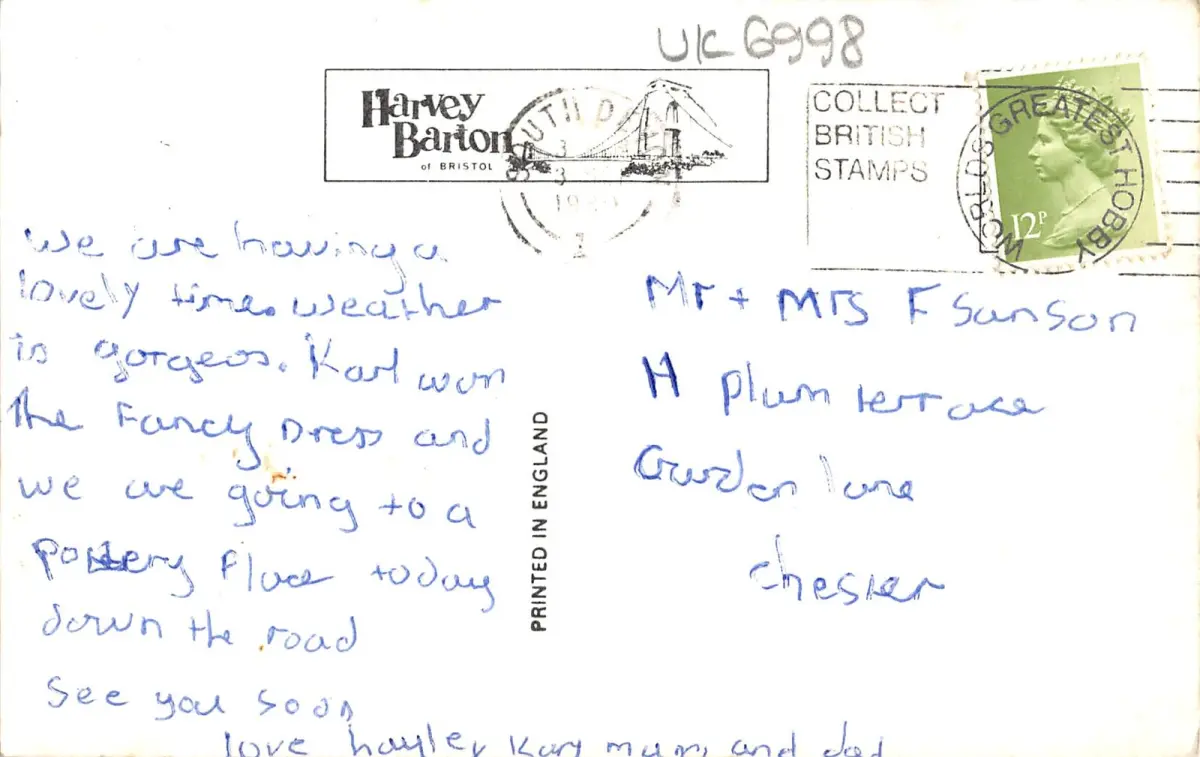 UK 6998
Harvey
Barton
of BRISTOL
SOUTH D
3
3
1
COLLECT
BRITISH
STAMPS
WORLDS GREATEST HOBBY
12P
We are having a
lovely time. weather
is gorgeos. Karl won
the Fancy Dress and
we are going to a
pottery Place today
down the road
See you soon
love hayley Karl mum and dad
PRINTED IN ENGLAND
Mr + Mrs F Sanson
H plum terrace
Garden lane
chester